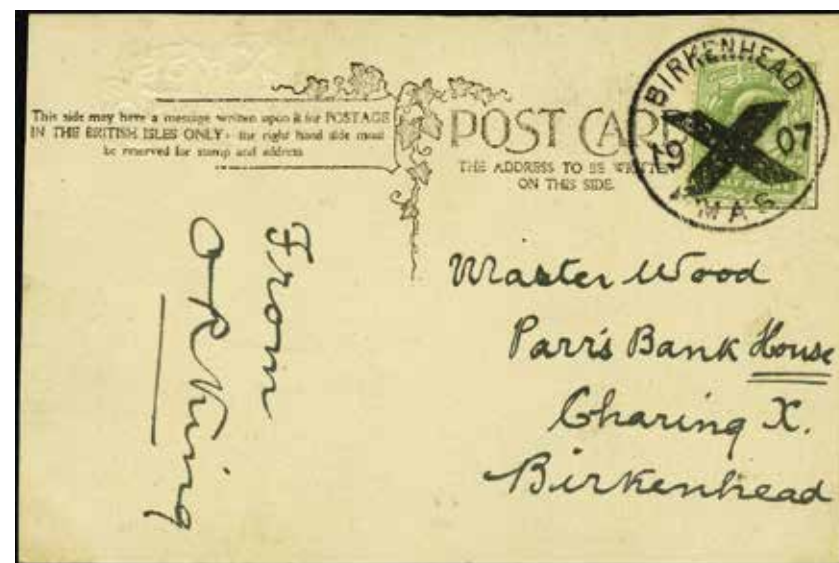 This side may have a message written upon it for POSTAGE
IN THE BRITISH ISLES ONLY - the right hand side must
be reserved for stamp and address
POST CARD
THE ADDRESS TO BE WRITTEN
ON THIS SIDE.
BIRKENHEAD
19 X 07
XMAS
From
O R King
Master Wood
Parr's Bank House
Charing X.
Birkenhead